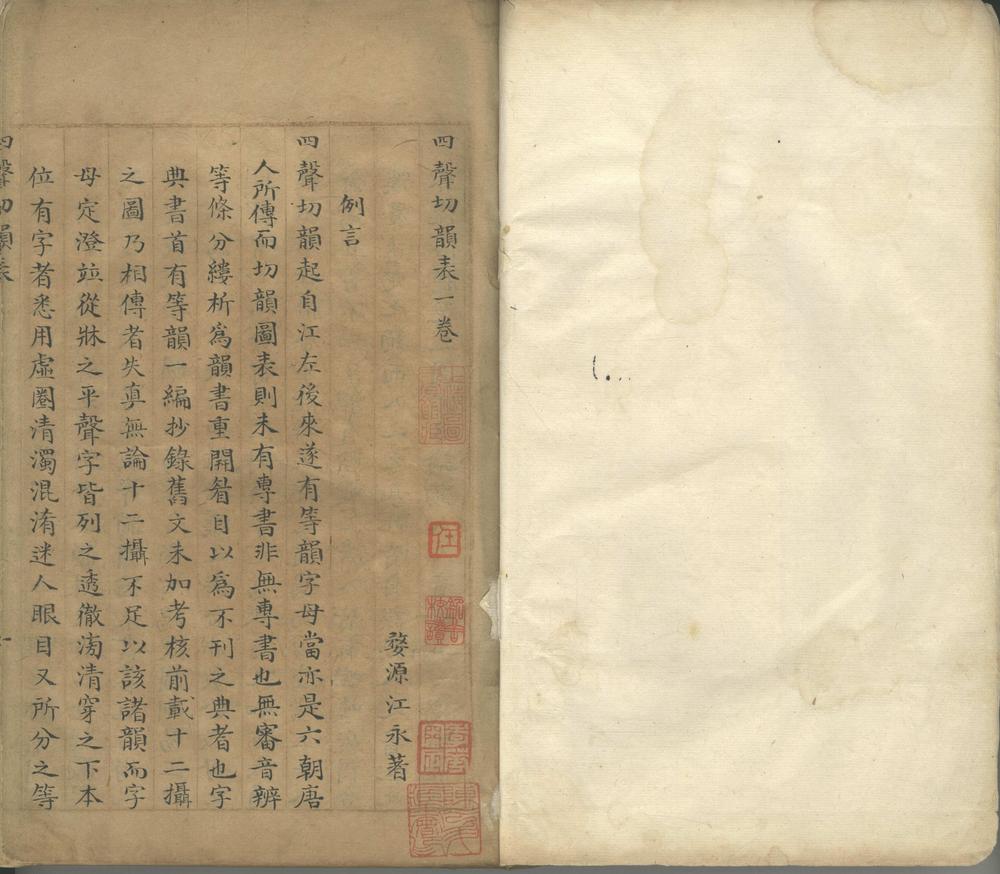 四聲切韻表一卷
婺源江永著
例言
四聲切韻起自江左後來遂有等韻字母當亦是六朝唐
人所傳而切韻圖表則未有專書非無專書也無審音辨
等條分縷析為韻書重開眉目以為不刊之典者也字
典書首有等韻一編抄錄舊文未加考核前載十二攝
之圖乃相傳者失真無論十二攝不足以該諸韻而字
母定澄竝從牀之平聲字皆列之透徹滂清穿之下本
位有字者悉用虛圈清濁混淆迷人眼目又所分之等
四聲切韻表